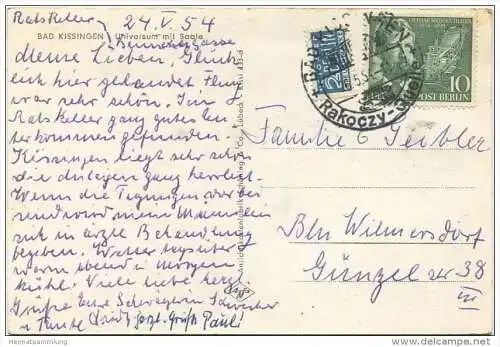 Ratskeller 24.V.54
BAD KISSINGEN Universum mit Saale
Brunnengasse
Meine Lieben, Glück-
lich hier gelandet Flug
war sehr schön. Im
Ratskeller ganz gutes Un-
terkommen gefunden.
Kissingen liegt sehr schön
die Anlagen ganz herrlich.
Wenn die Tagungen vorbei
sind wird mein Mann
sich in ärztl Behandlung
begeben. Wetter tagsüber
warm abends u Morgen
kühl. Viele liebe herzl.
Grüße Eure Schwägerin Schwester
u Tante herzl. Grüße Pauli
BAD KISSINGEN
Rakoczy
10
POST BERLIN
2
BERLIN
Familie Geibler
Bln Wilmersdorf
Günzel str 38
III
Heimatsammlung
www.delcampe.net